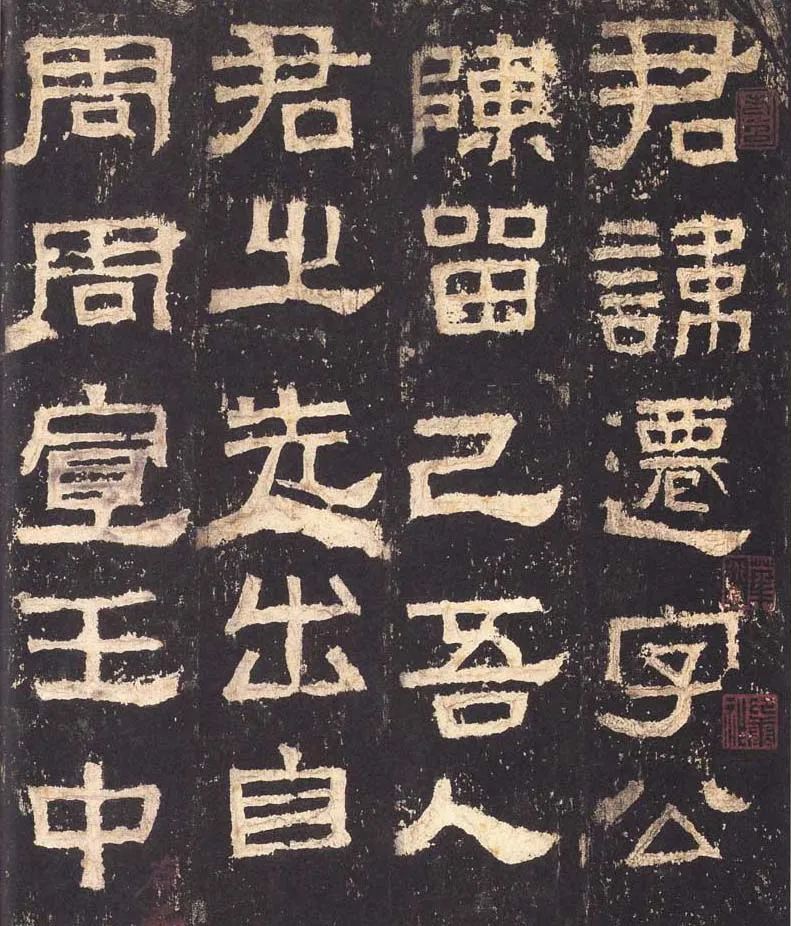 君諱遷字公
陳留己吾人
君之先出自
周周宣王中